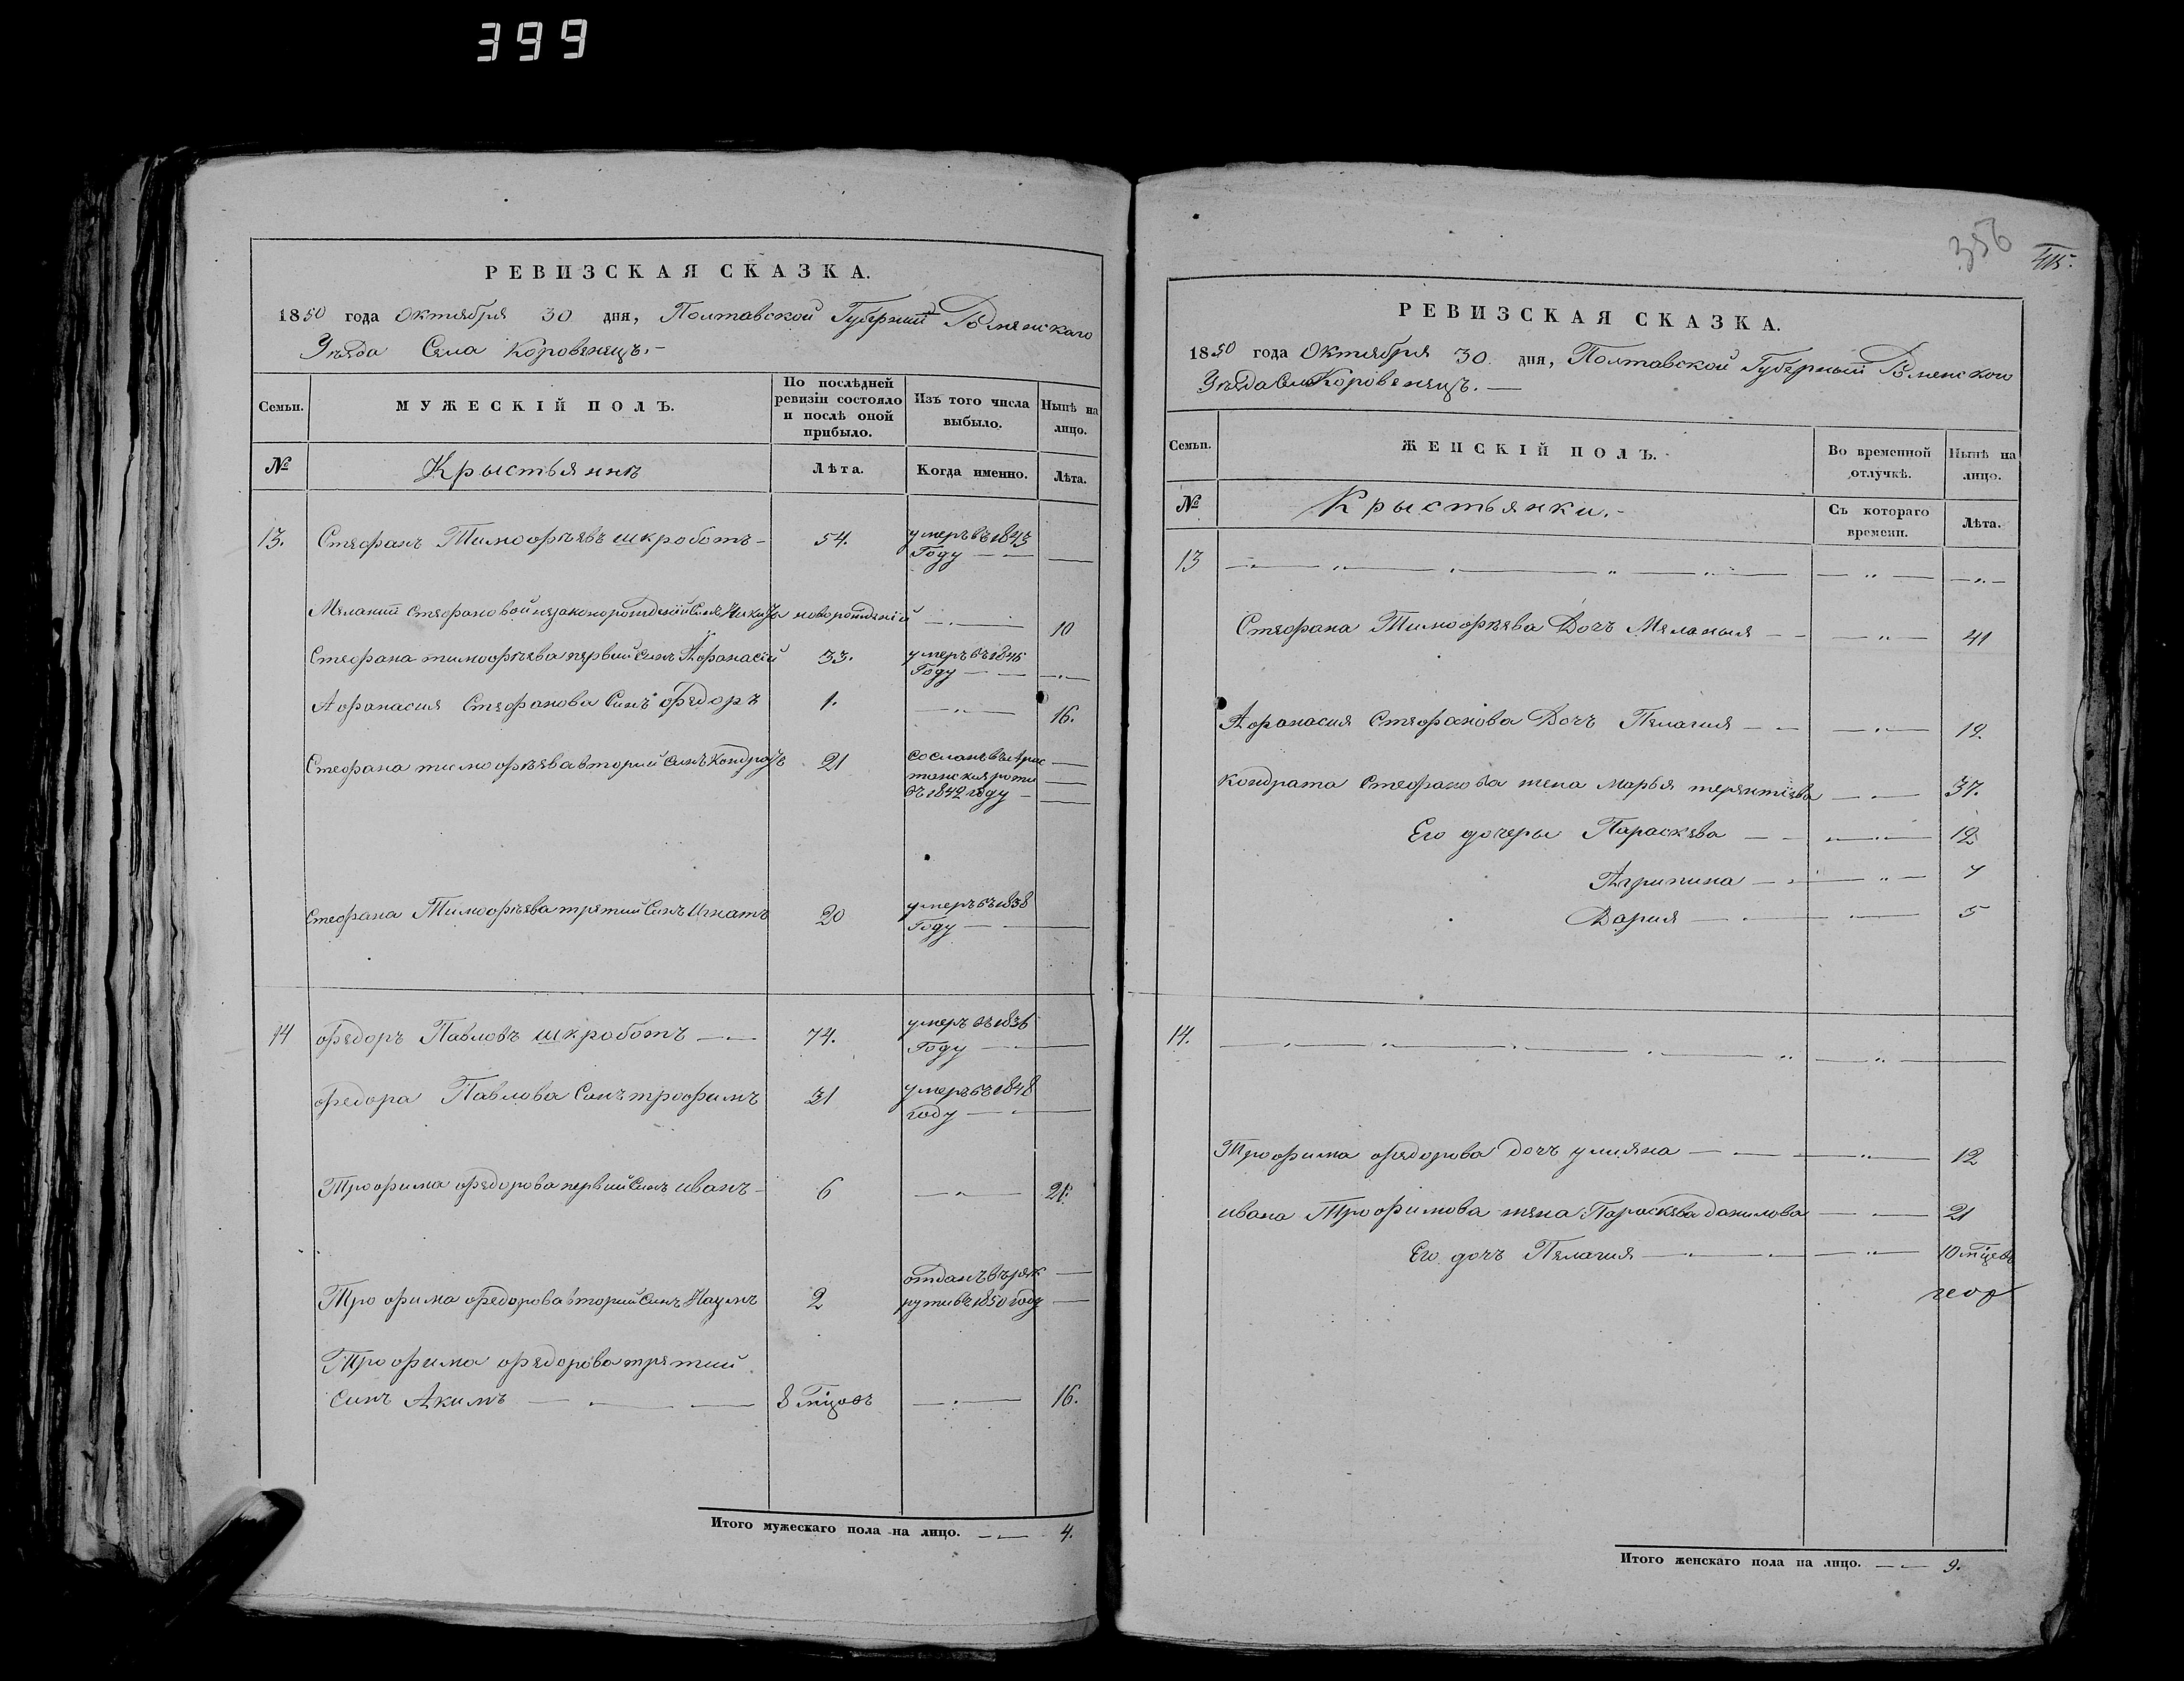 399
РЕВИЗСКАЯ СКАЗКА.
1850 года Октября 30 дня, Полтавской Губерний Роменскаго
Уѣзда Села Коровенецъ.-
Семьи.
МУЖЕСКІЙ ПОЛЪ.
По послѣдней ревизіи состояло и послѣ оной прибыло.
Изъ того числа выбыло.
Нынѣ на лицо.
№
Крыстьянѣ
Лѣта.
Когда именно.
Лѣта.
13. Стефанъ Тимофѣевъ шкроботъ - 54. умеръ въ 1843
Году
Меланий Стефановой незаконорожденій Синъ новорожденій 10
Стефана тимофѣева первий Синъ Афанасій 33. умеръ въ 1846
Году
Афанасия Стефанова Синъ федоръ 1. 16.
Стефана тимофѣева вторий Синъ Кондратъ 21 сосланъ въ Арес
танския роти
въ 1842 году -
Стефана Тимофѣева третий Синъ Игнатъ 20 умеръ въ 1838
Году
14 федоръ Павловъ шкроботъ 74. умеръ въ 1836
Году
федора Павлова Синъ трофимъ 31 умеръ въ 1848
году
Трофима федорова первий Синъ иванъ - 6 21.
отданъ въ рек
Трофима федорова вторий Синъ Наумъ 2 рути въ 1850 году
Трофима федорова третий
Синъ Акимъ 8 мцовъ 16.
Итого мужескаго пола на лицо. 4.
356
415.
РЕВИЗСКАЯ СКАЗКА.
1850 года Октября 30 дня, Полтавской Губерний Роменского
Уѣзда Села Коровенецъ.
Семьи.
ЖЕНСКІЙ ПОЛЪ.
Во временной отлучкѣ.
Нынѣ на лицо.
№
Крыстьянки.-
Съ котораго времени.
Лѣта.
13
Стефана Тимофѣева Дочъ Меланья 41
Афанасия Стефанова Дочъ Пелагия 12
Кондрата Стефанова жена марья терентіева 37.
Его дочеры Параскева 12
Агрипина 7
Дария 5
14.
Трофима федорова дочъ улияна 12
ивана Трофимова жена Параскева данилова 21
Его дочъ Пелагия 10 мцевъ
Итого женскаго пола на лицо. 9.